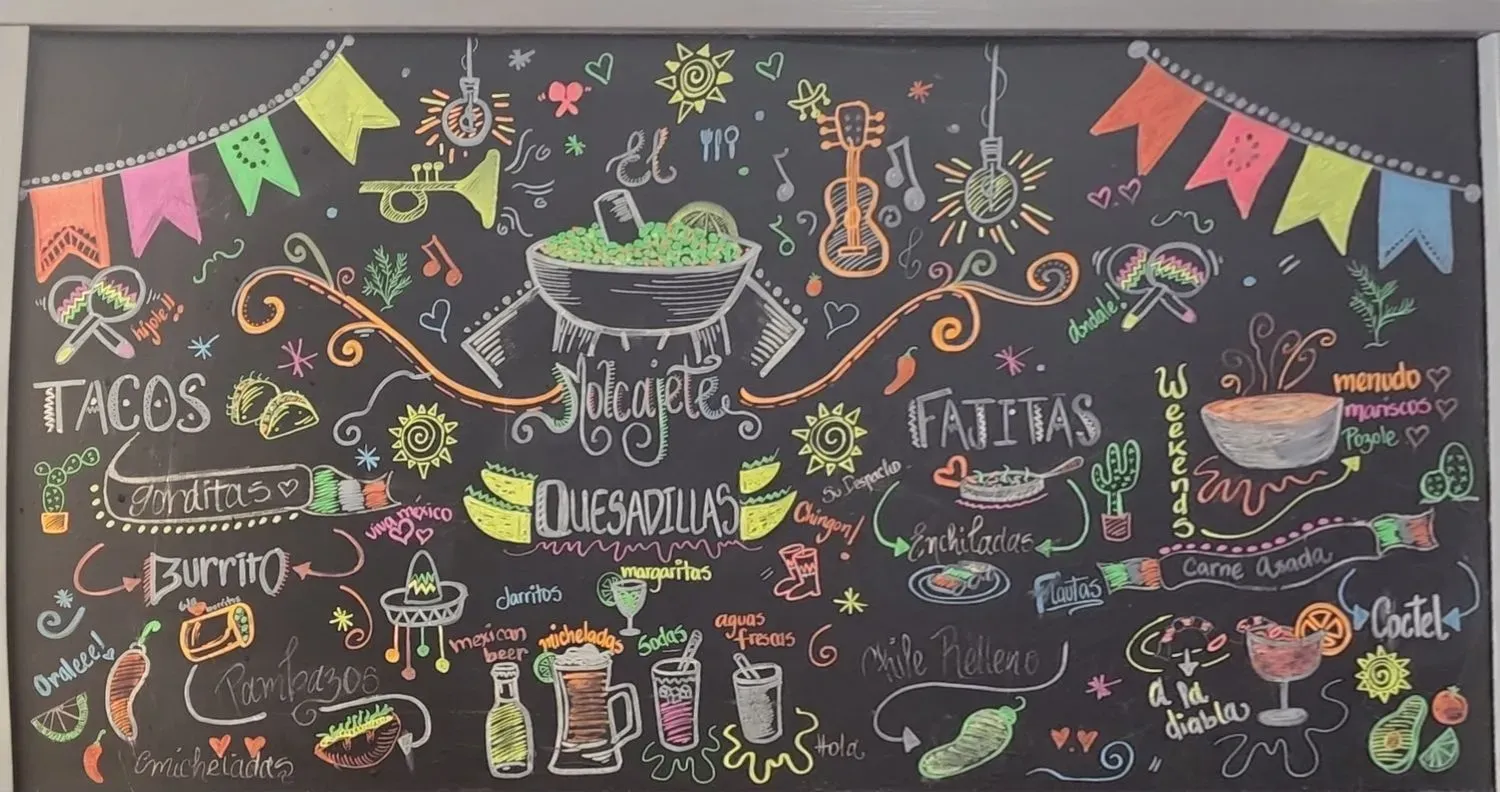 El
Molcajete
híjole!!
ándale!
TACOS
FAJITAS
Weekends
menudo
mariscos
Pozole
gorditas
viva méxico
QUESADILLAS
Su Despacho
Chingon!
Enchiladas
Carne asada
Flautas
Burrito
Jarritos
margaritas
mexican
beer
micheladas
Sodas
aguas
frescas
Coctel
Oraleee!
Pambazos
Chile Relleno
a la
diabla
Hola